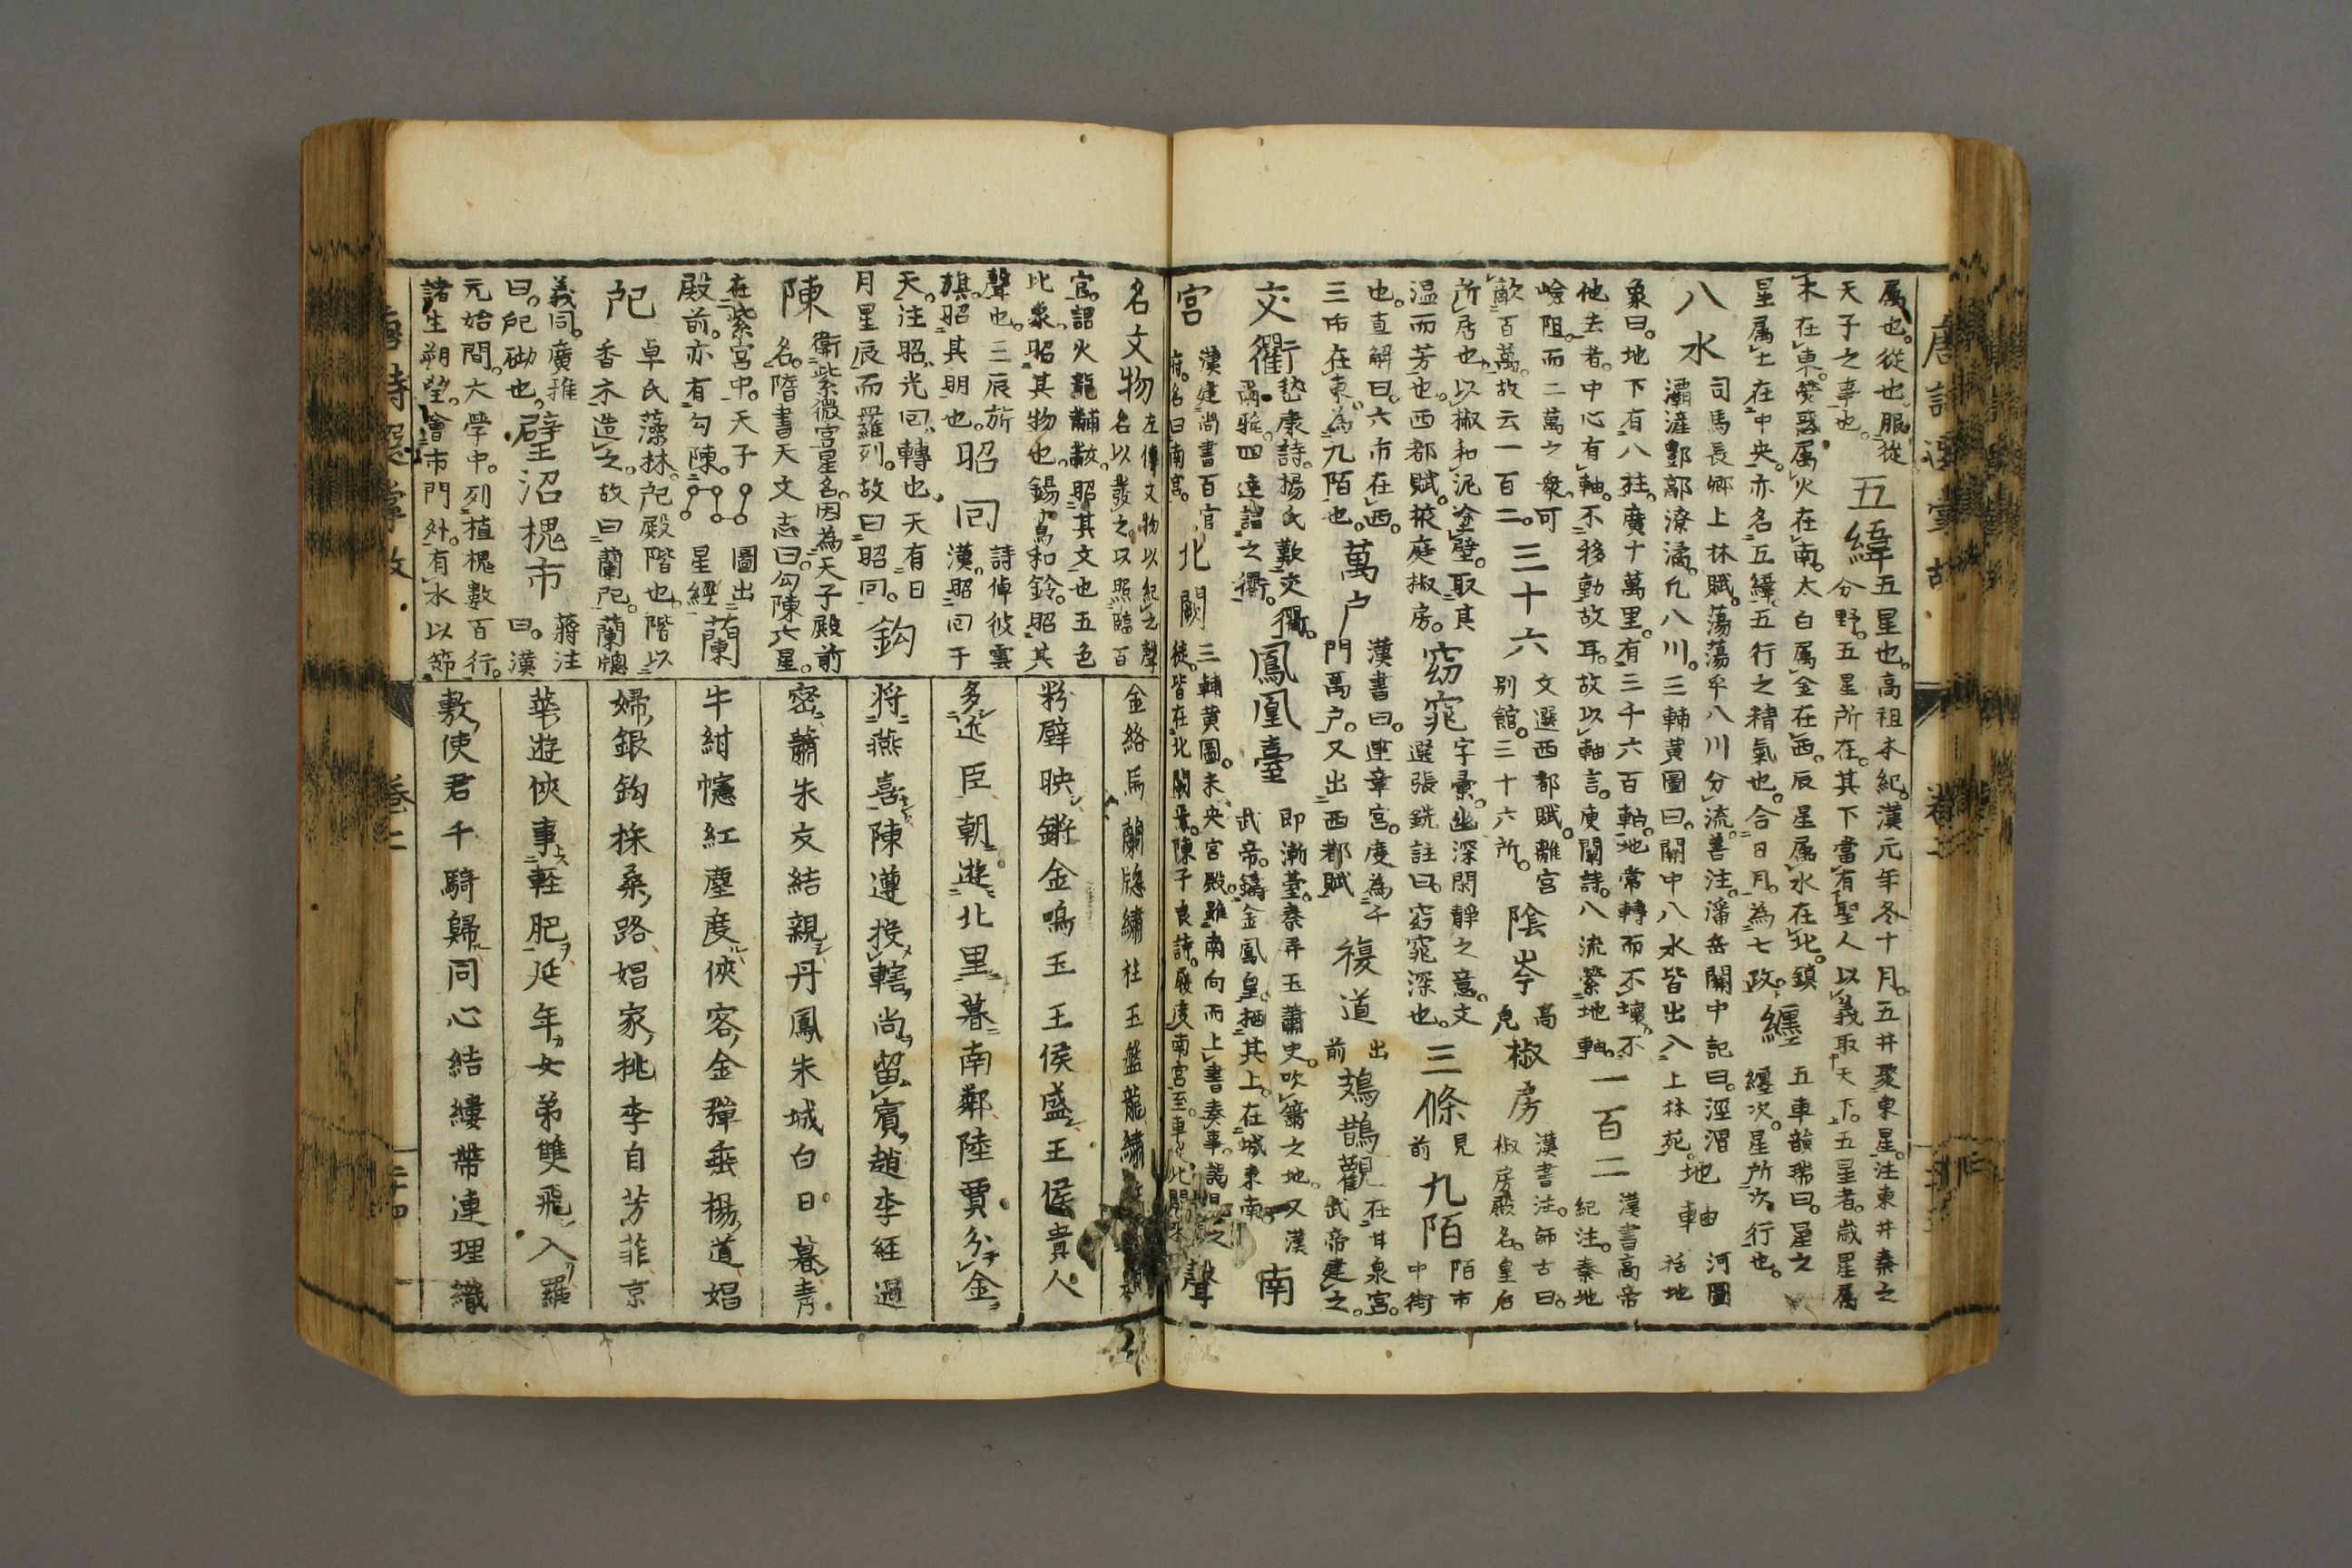 唐詩選掌故
卷二
屬也。從也。服從 五緯 五星也。高祖本紀。漢元年冬十月。五井聚東星。注東井秦之
天子之事也。 分野。五星所在。其下當有聖人以義取天下。五星者。歲星屬
木在東。熒惑屬火在南。太白屬金在西。辰星屬水在北。鎮 纏 五車韻瑞曰。星之
星屬土在中央。亦名五緯。五行之精氣也。合日月。為七政。 纏次。星所次行也。
八水 司馬長卿上林賦。蕩蕩乎八川分流。善注。潘岳關中記曰。涇渭 地軸 河圖
灞滻酆鄗潦潏。凡八川。三輔黃圖曰。關中八水皆出入上林苑。 括地
象曰。地下有八柱。廣十萬里。有三千六百軸。地常轉而不壞。不 一百二 漢書高帝
他去者。中心有軸。不移動故耳。故以軸言。庾闡詩。八流縈地軸。 紀注。秦地
嶮阻。而二萬之衆。可 三十六 文選西都賦。離宮 陰岑 高 椒房 漢書注。師古曰。
敵百萬。故云一百二。 別館。三十六所。 皃 椒房殿名。皇后
所居也。以椒和泥塗壁。取其 窈窕 字彙。幽深閑靜之意。文 三條 見 九陌 陌市
温而芳也。西都賦。掖庭椒房。 選張銑註曰。窈窕深也。 前 中街
也。直解曰。六市在西。 萬戶 漢書曰。建章宮。度為千 複道 出 鳷鵲觀 在甘泉宮。
三市在東。為九陌也。 門萬戶。又出西都賦 前 武帝建之。
交衢 嵇康詩。揚氏歎交衢。 鳳凰臺 即漸臺。秦弄玉蕭史。吹簫之地。又漢 南
爾雅。四達謂之衢。 武帝。鑄金鳳皇。栖其上。在城東南。
宮 漢建尚書百官 北闕 三輔黃圖。未央宮殿。雖南向而上書奏事。謁見之 聲
府。名曰南宮。 徒。皆在北闕焉。陳子良詩。履度南宮至。車從北闕來
名文物 左傳文物以紀之聲
名以發之。以照臨百
官。詔火龍黼黻。昭其文也五色
比象。昭其物也。鍚鸞和鈴。昭其
聲也。三辰旂 昭回 詩倬彼雲
旗。昭其明也。 漢。昭回于
天。注昭光回轉也。天有日 鈎
月星辰而羅列。故曰昭回。
陳 衛紫微宮星名。因為天子殿前
名。隋書天文志曰。勾陳六星。
在紫宮中。天子 圖出 蘭
殿前。亦有勾陳。 星經
戺 卓氏藻林。戺殿階也。階以
香木造之。故曰蘭戺。蘭牕
義同。廣雅 璧沼槐市 蔣注
曰。戺砌也。 曰。漢
元始間。大學中。列植槐數百行。
諸生朔望。會市門外。有水以節
金絡扃蘭牕繡柱玉盤龍繡
粉壁映鏘金鳴玉王侯盛王侯貴人
多近臣朝遊北里暮南鄰陸賈分金
將燕喜陳遵投轄尚留賓趙李經過
密蕭朱交結親丹鳳朱城白日暮青
牛紺幰紅塵度俠客金彈垂楊道娼
婦銀鈎採桑路娼家桃李自芳菲京
華遊俠事輕肥延年女弟雙飛入羅
敷使君千騎歸同心結縷帶連理織
唐詩選掌故
卷二
二十四